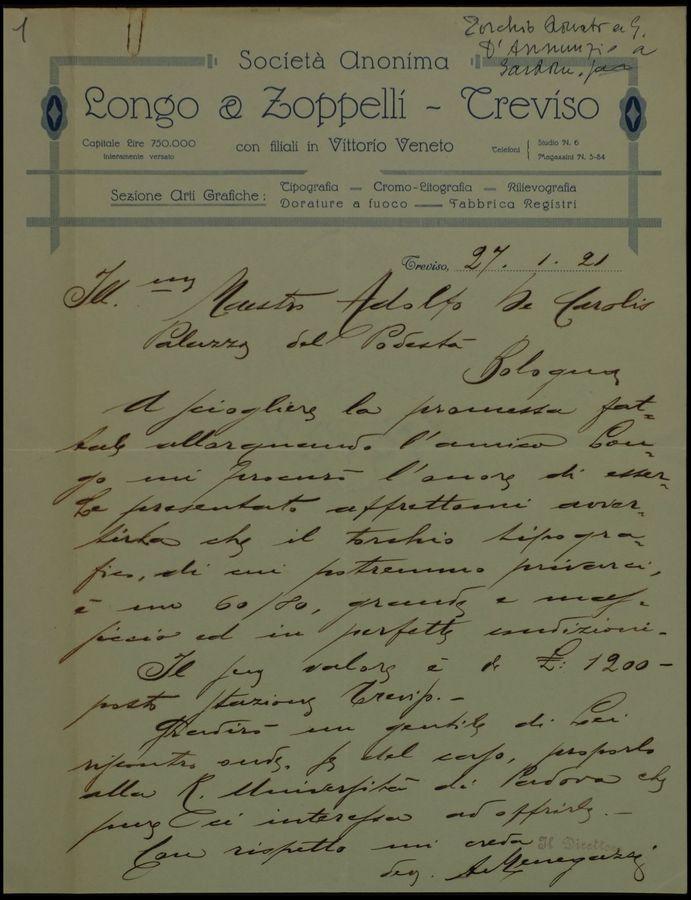 1
Torchio donato a G.
D'Annunzio a
Società Anonima
Longo & Zoppelli - Treviso
Capitale Lire 750.000
interamente versato
con filiali in Vittorio Veneto
Telefoni
Studio N. 6
Magazzini N. 5-84
Sezione Arti Grafiche:
Tipografia — Cromo-Litografia — Rilievografia
Dorature a fuoco — Fabbrica Registri
Treviso, 27. 1. 21
Ill.mo Maestro Adolfo De Carolis
Palazzo del Podestà
Bologna
A sciogliere la promessa fat-
tale allorquando l'amico Lon-
go mi procurò l'onore di esser-
Le presentato affrettomi avver-
tirla che il torchio tipogra-
fico, di cui potremmo privarci,
è un 60/80, grande e mas-
siccio ed in perfette condizioni.
Il suo valore è di £: 1200 -
posto stazione Treviso. -
Gradirò un gentile di Lei
riscontro onde, se del caso, proporlo
alla R. Università di Padova che
pure ci interessa ad offrirle. -
Con rispetto mi creda
Il Direttore
dev. A. Menegazzi